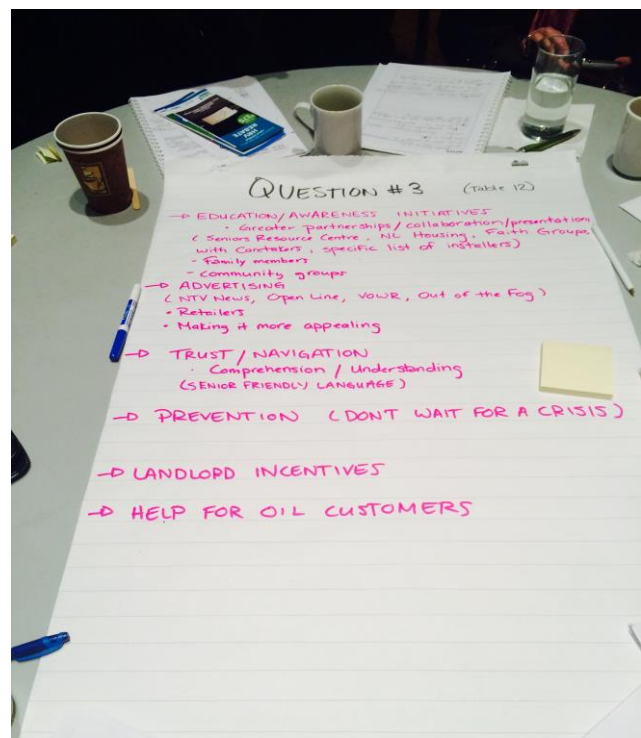 QUESTION #3 (Table 12)
→ EDUCATION/AWARENESS INITIATIVES
• Greater partnerships/collaboration/presentation
(Seniors Resource Centre, NL Housing, Faith Groups
with Caretakers, specific list of installers)
- Family members
- Community groups
→ ADVERTISING
(NTV News, Open Line, VOWR, Out of the Fog)
• Retailers
• Making it more appealing
→ TRUST/NAVIGATION
• Comprehension/Understanding
(SENIOR FRIENDLY LANGUAGE)
→ PREVENTION (DONT WAIT FOR A CRISIS)
→ LANDLORD INCENTIVES
→ HELP FOR OIL CUSTOMERS